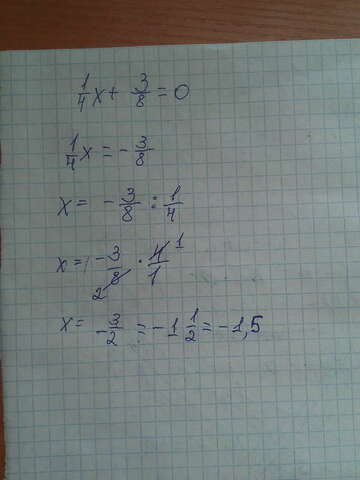 1/4 x + 3/8 = 0
1/4 x = - 3/8
x = - 3/8 : 1/4
x = - 3/8 2 · 4/1 1
x = - 3/2 = - 1 1/2 = - 1,5